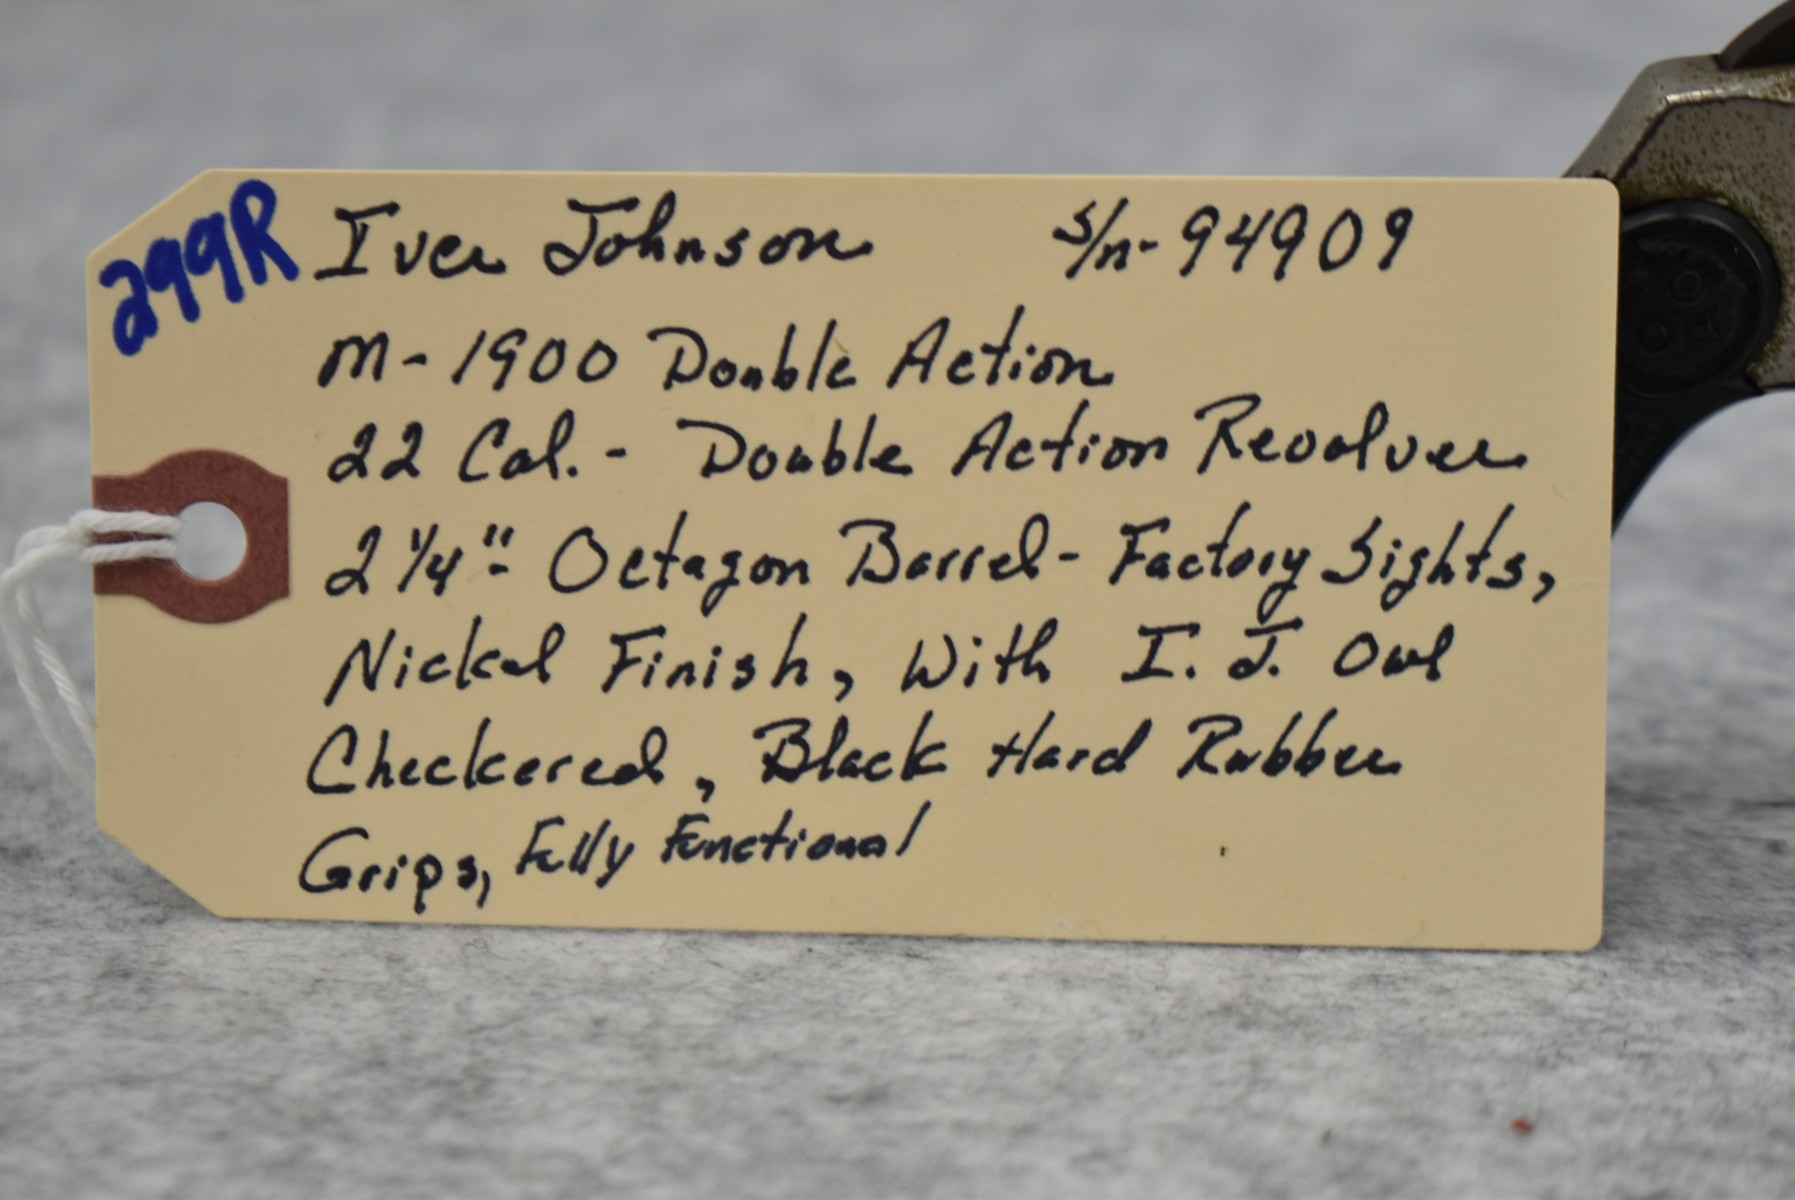 299R
Iver Johnson S/n-94909
M-1900 Double Action
22 Cal. - Double Action Revolver
2 1/4" Octagon Barrel - Factory Sights,
Nickel Finish, With I. J. Owl
Checkered, Black Hard Rubber
Grips, Fully Functional